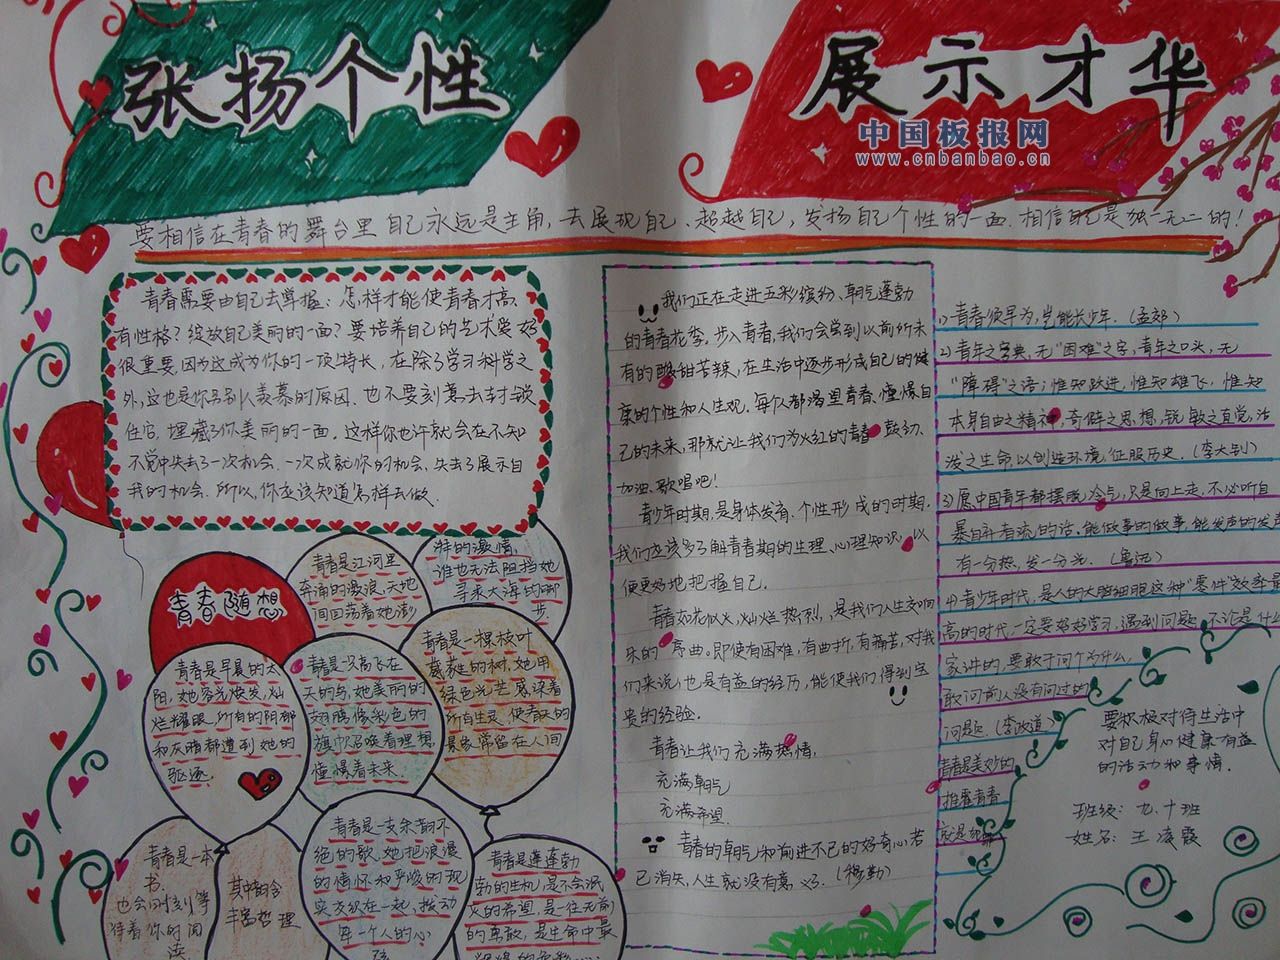 张扬个性
展示才华
中国板报网
www.cnbanbao.cn
要相信在青春的舞台里自己永远是主角,去展现自己、超越自己,发扬自己个性的一面.相信自己是独一无二的!
青春需要由自己去掌握:怎样才能使青春才高、
有性格?绽放自己美丽的一面?要培养自己的艺术爱好
很重要,因为这成为你的一项特长,在除了学习科学之
外,这也是你另别人羡慕的原因.也不要刻意去封锁
住它,埋藏了你美丽的一面.这样你也许就会在不知
不觉中失去了一次机会.一次成就你的机会、失去了展示自
我的机会.所以,你应该知道怎样去做.
青春随想
青春是江河里
奔涌的漫浪,天地
间回荡着她澎
湃的激情,
谁也无法阻挡她
寻求大海的脚
步.
青春是早晨的太
阳,她容光焕发,灿
烂耀眼,所有的阴郁
和灰暗都遭到她的
驱逐.
青春是只高飞在
天的鸟,她美丽的
翅膀像彩色的
旗巾召唤着理想
憧憬着未来.
青春是一棵枝叶
葳蕤的树,她用
绿色光芒感染着
所有生灵.使春天的
景象常留在人间
青春是一本
书.
也会时刻等
待着你的阅
读
其中的含
丰富哲理
青春是一支余韵不
绝的歌,她把浪漫
的情怀和严峻的现
实交织在一起,拨动
每一个人的心
弦
青春是蓬蓬勃
勃的生机,是不会泯
灭的希望,是一往无前
的勇敢,是生命中最
辉煌的色彩
我们正在走进五彩缤纷、朝气蓬勃
的青春花季。步入青春,我们会尝到以前所未
有的酸甜苦辣,在生活中逐步形成自己的健
康的个性和人生观。每个人都渴望青春、憧憬自
己的未来,那就让我们为火红的青春鼓劲、
加油、歌唱吧!
青少年时期,是身体发育、个性形成的时期.
我们应该多了解青春期的生理、心理知识,以
便更好地把握自己.
青春如花似火,灿烂热烈,是我们人生交响
乐的序曲。即使有困难,有曲折,有痛苦,对我
们来说,也是有益的经历,能使我们得到宝
贵的经验.
青春让我们充满热情.
充满朝气
充满希望.
青春的朝气和前进不已的好奇心若
已消失,人生就没有意义.(穆勒)
1)青春须早为,岂能长少年.(孟郊)
2)青年之字典,无“困难”之字,青年之口头,无
“障碍”之语;惟知跃进,惟知雄飞,惟知
本身自由之精神,奇僻之思想,锐敏之直觉,活
泼之生命,以创造环境,征服历史.(李大钊)
3)愿中国青年都摆脱冷气,只是向上走,不必听自
暴自弃者流的话.能做事的做事,能发声的发声
有一分热,发一分光.(鲁迅)
4)青少年时代,是人的大脑细胞这种“零件”效率最
高的时代,一定要好好学习,遇到问题,不论是什么
家讲的,要敢于问个为什么,
敢问前人没有问过的
问题.(李政道)
青春是美妙的
推
青春
要积极对待生活中
对自己身心健康有益
的活动和事情.
班级:九.十班
姓名:王凌霞